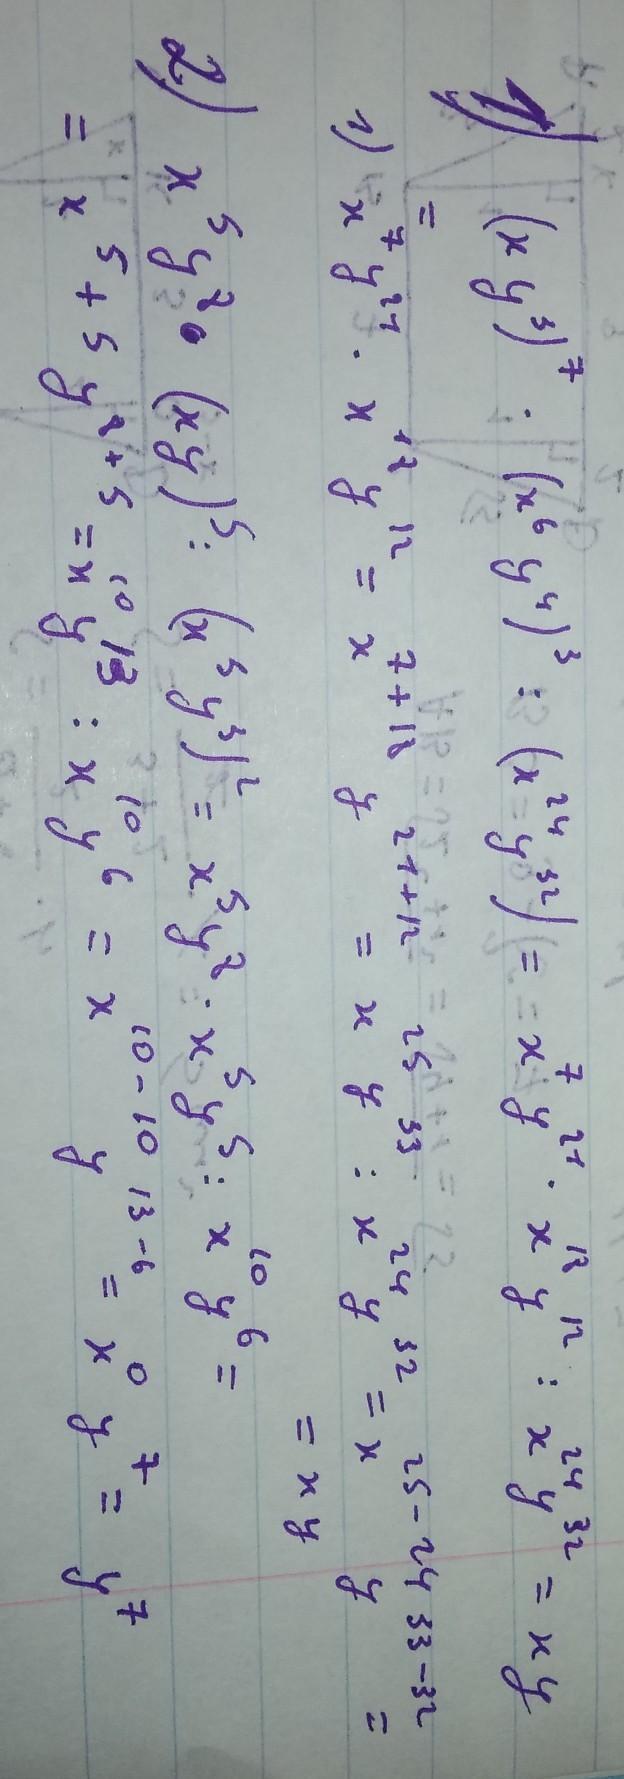 1) (xy³)⁷ : (x⁶y⁴)³ : (x²⁴y³²) = x⁷y²¹ · x¹⁸y¹² : x²⁴y³² = xy
=
1) x⁷y²¹ · x¹⁸y¹² = x⁷⁺¹⁸ y²¹⁺¹² = x²⁵y³³ : x²⁴y³² = x²⁵⁻²⁴ y³³⁻³² =
= xy
2) x⁵y⁸ · (xy)⁵ : (x⁵y³)² = x⁵y⁸ · x⁵y⁵ : x¹⁰y⁶ =
= x⁵⁺⁵ y⁸⁺⁵ = x¹⁰y¹³ : x¹⁰y⁶ = x¹⁰⁻¹⁰ y¹³⁻⁶ = x⁰y⁷ = y⁷